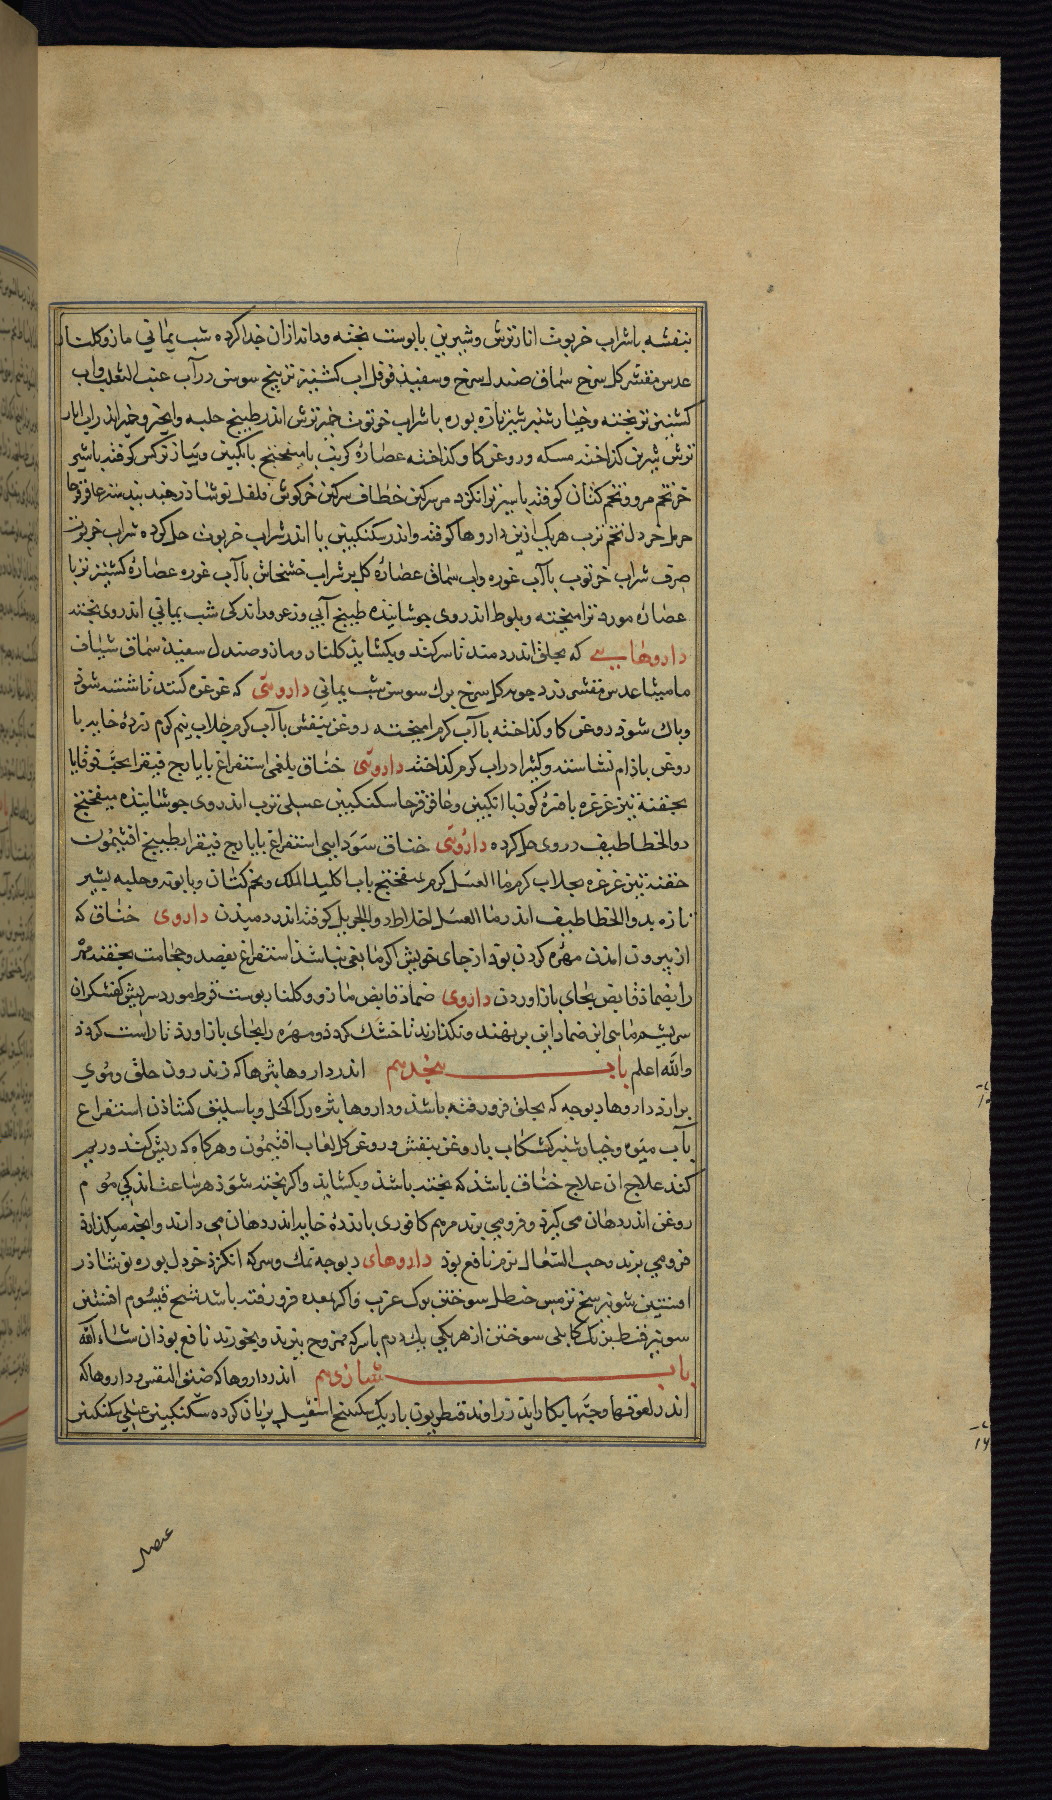 بنفشه باشراب خرنوب انار ترش وشیرین باپوست پخته ودانه ازان جدا کرده شب یمانی مازو کلنار
عدس مقشر کل سرخ سماق صندل سرخ وسفید فوفل اب کشنیز تر بیخ سوسن درآب عنب الثعلب واب
کشنیز تر پخته وخیار شنبر شیر تازه بوره باشراب خرتوت خمیر ترش اندر طبیخ حلبه وانجیر وخمیر اندر اب انار
ترش شیرین کداخته مسکه وروغن کاو کداخته عصارۀ کرنب بامیفختج باانکبین وپیاز نرکس کوفته باشیر
خر تخم مرو وتخم کتان کوفته باشیر تر انکزد مر سرکین خطاف سرکین خرکوش فلفل نوشاذر جند بیدستر عاقرقرحا
حرمل خردل تخم ترب هریکی ازین داروها کوفته واندر سکنکبین یا اندر شراب خرنوب حل کرده شراب خرنوب
صرف شراب خرتوب باآب غوره واب سماق عصارۀ کل برشراب خشخاش باآب غوره عصارۀ کشنیز تر با
عصارۀ مورد تر امیخته وبلوط اندر وی جوشانیده طبیخ آبی وزعرور اندکی شب یمانی اندر وی پخته
داروهایی که بحلق اندر دمند تاسر کند وبکشاید کلنار ومازو صندل سفید سماق شیاف
مامیثا عدس مقشر زرد چوبه کل سرخ برك سوسن شب یمانی داروئی که غرغره کنند تاشسته شوذ
وپاك شود روغن کاو کداخته باآب کرم امیخته روغن بنفش باآب کرم جلاب نیم کرم زردۀ خایه با
روغن باذام نشاسته وکثیرا دراب کرم کداخته داروئی خناق بلغمی استفراغ بایارج فیقرا بحب قوقایا
بحقنه تیز غرغره بامرۀ کوتبا انکبین وعاقرقرحا سکنکبین عسلی ترب اندروی جوشانیذه میفختج
دوالخطاطیف دروی حل کرده داروئی خناق سَوَدایی استفراغ بایارج فیقرا بطبیخ افتیمُون
حقنه تیز غرغره بجلاب کرم ما العسل کرم میفختج باب اکلیل الملک وتخم کتان وبابونه وحلبه بشیر
تازه بدوا الخطاطیف اندر ما العسل اخلاط دوا الحرمل کوفته اندر دمیذن داروی خناق که
از بیرون امذن مهُره کردن بوذ از جای خویش اکر مانعی نباشذ استفراغ بفصد وحجامت بحقنه مهُره
را بضماذ قابض بجای بازاوردن داروی ضماذ قابض مازو وکلنار پوست قرظ مورد سریش کفشکران
سریشم ماهی این ضماد این برنهند وبکذارند تاخشك کرذذ ومهرَه رابجای بازاورذ تاراست کرذذ
والله اعلم باب پنجدهم اندر داروها بثرها که زندرون حلق ومُوي
براند داروها دیوجه که بحلق فرورفته باشد وداروها بثره رك اکحل وباسلیق کشاذن استفراغ
بآب میوه وخیار شنبر کشکاب باروغن بنفش وروغن کل لعاب افتیمُون وهرکاه که ریش کند وریم
کند علاج ان علاج خناق باشد که پخته باشد وبکشاید واکر پخته شوَد هر ساعت اندکی مُوم
روغن اندر دهان می کیرد وفرومی برد مرهم کافوری بازردۀ خایه اندر دهان می دارند وانچه میکذازد
فرومی برند وحب السُعال نرم نافع بوذ داروهای دیوجه نمك وسرکه انکزد خردل بوره نوشاذر
افسنتین شونیز سیر ترمس حنظل سوختن برك غرب واکر بمعده فرورفته باشد شیح قیسُوم افسنتین
سونیز قسط برنك کابلی سوختن از هریکی یك درم باسرکه ممزوج بپزند وبخورند نافع بوذ ان شاء الله
باب شانزدهم اندر داروها که ضیق النفس وداروها که
اندر لعوقها وحبّها بکار اید زراوند قنطریون باریک سکبینج اسقیل بریان کرده سکنکبین عنصلی سکنکبین
عنصل